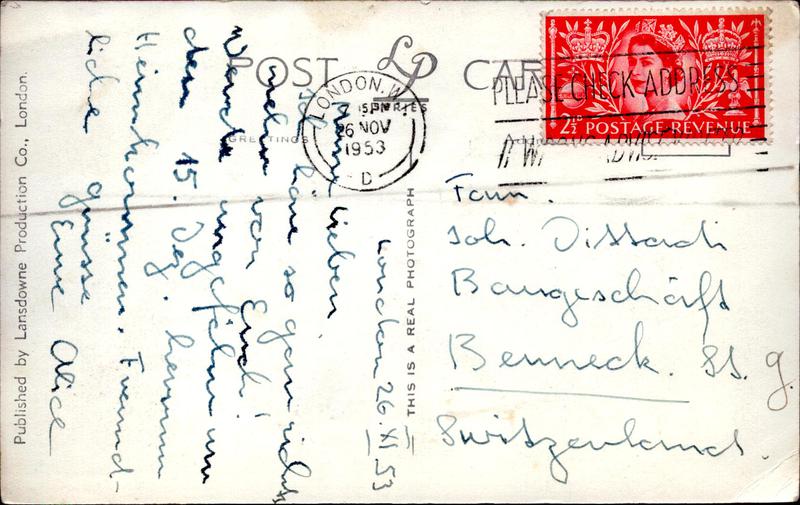 POST CARD
LP
SERIES
GREETINGS
LONDON.W.
26 NOV
1953
D
PLEASE CHECK ADDRESS
2½D POSTAGE REVENUE
London 26.XI.53
Meine Lieben,
Ich höre so gar nichts
mehr von Euch!
Werde ungefähr um
den 15. Dez. herum
Heimkommen. Freund-
liche grüsse
Eure Alice
Fam.
Joh.
Baugeschäft
Berneck. St. g.
Switzerland.
THIS IS A REAL PHOTOGRAPH
Published by Lansdowne Production Co., London.